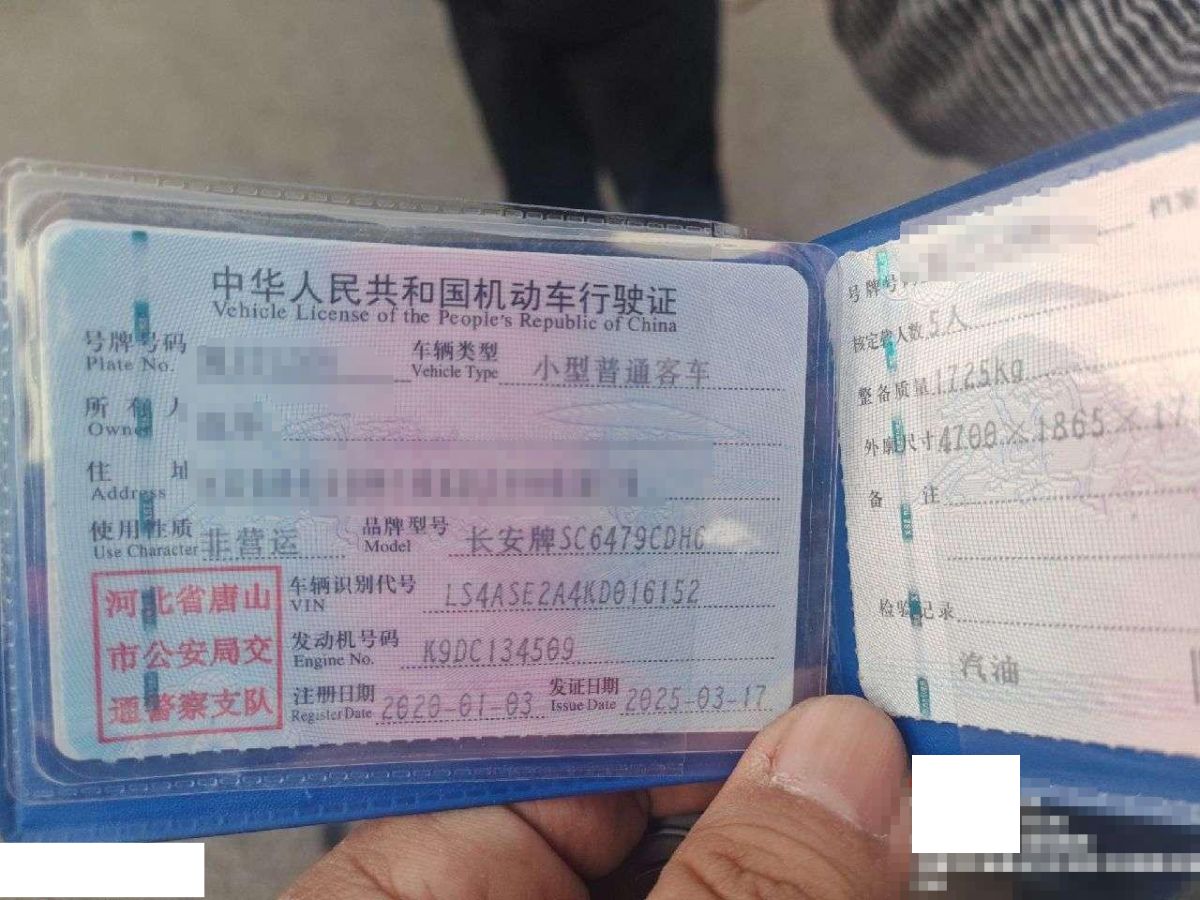 中华人民共和国机动车行驶证
Vehicle License of the People's Republic of China
号牌号码
Plate No.
车辆类型 小型普通客车
Vehicle Type
所有人
Owner
住址
Address
使用性质 非营运
Use Character
品牌型号 长安牌SC6479CDHG
Model
河北省唐山
市公安局交
通警察支队
车辆识别代号 LS4ASE2A4KD016152
VIN
发动机号码 K9DC134509
Engine No.
注册日期 2020-01-03
Register Date
发证日期 2025-03-17
Issue Date
档案
号牌号
核定载人数 5人
整备质量 1725kg
外廓尺寸 4700×1865×17
备注
检验记录
汽油